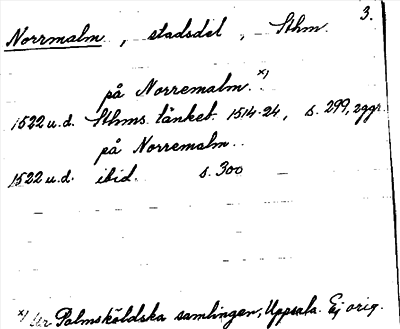 3.
Norrmalm, stadsdel, Sthm.
på Norremalm. x)
1522 u.d. Sthms tänkeb. 1514-24, s. 299, 2ggr.
på Norremalm.
1522 u.d. ibid. s. 300
x) Ur Palmsköldska samlingen, Uppsala. Ej orig.